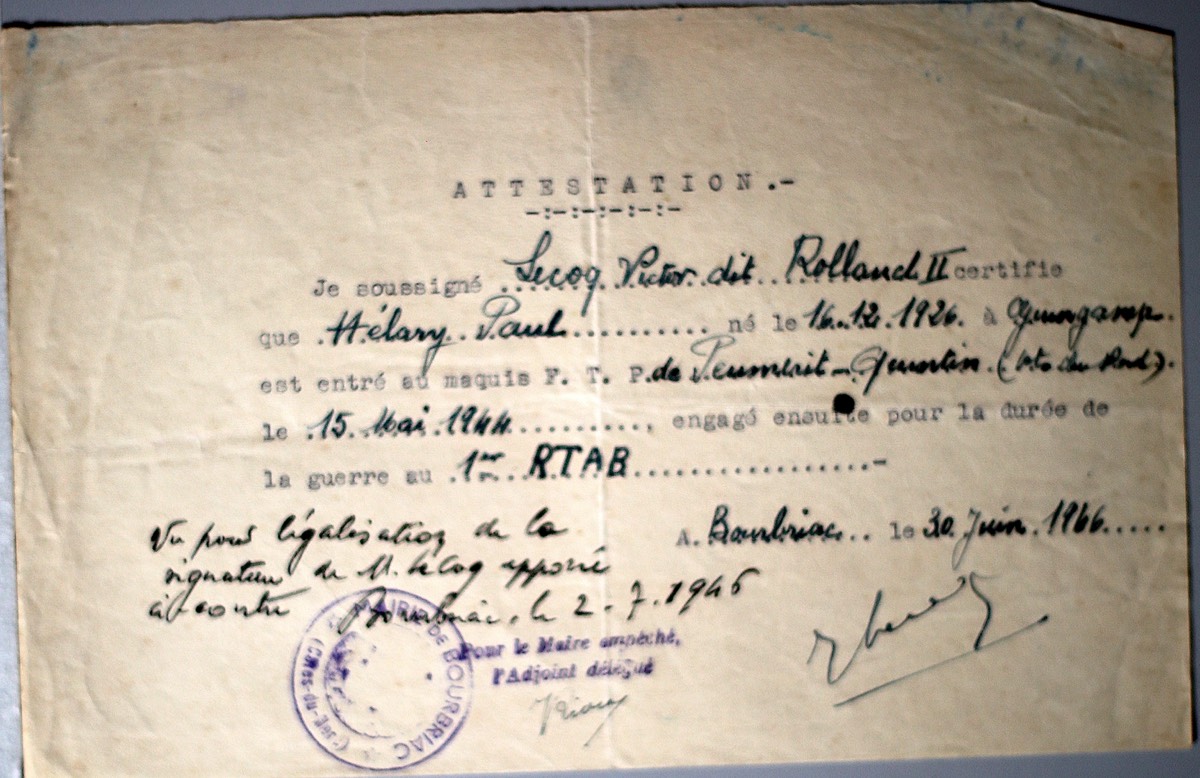 ATTESTATION.-
-:-:-:-:-:-
Je soussigné Lecoq Victor dit Rolland II certifie
que Hélary Paul .......... né le 16.12.1926. à Guingamp.
est entré au maquis F. T. P. de Peumerit-Quintin (Côtes du Nord).
le 15 Mai 1944 .........., engagé ensuite pour la durée de
la guerre au 1er RTAB ................-
A Bourbriac.. le 30 Juin 1946.....
Vu pour légalisation de la
signature de M. Lecoq apposée
ci-contre Bourbriac, le 2-7-1946
Pour le Maire empêché,
l'Adjoint délégué
MAIRIE DE BOURBRIAC (CÔTES-DU-NORD)